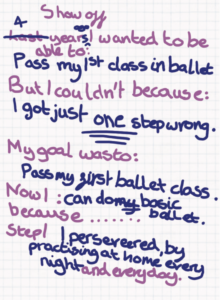 Show off
4
last years I wanted to be
able to:
Pass my 1st class in ballet
But I couldn't because:
I got just one step wrong.
My goal was to:
Pass my first ballet class.
Now I: can do my basic
because ....... ballet.
Step1 I persevered, by
practising at home every
night and everyday.